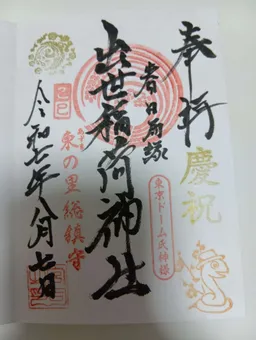 奉拝
慶祝
春日局縁
出世稲荷神社
東京ドーム氏神様
己巳
東の里総鎮守
令和七年八月七日